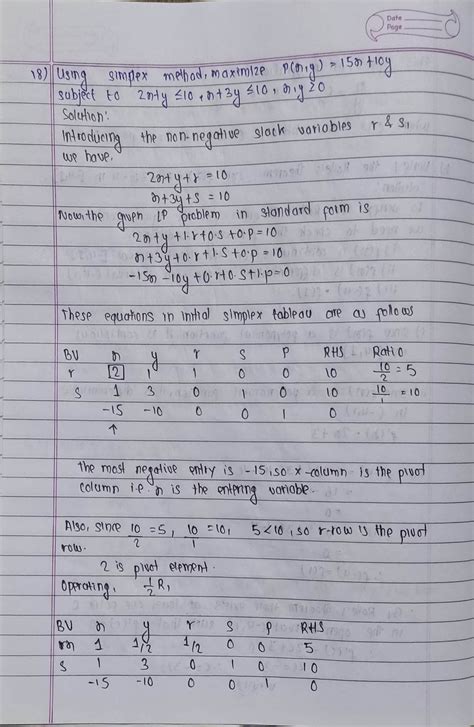 Date
Page
18) Using simplex method, maximize P(x,y) = 15x+10y
subject to 2x+y ≤10, x+3y ≤10, x,y ≥0
Solution:
Introducing the non-negative slack variables r & s,
we have.
2x+y+r = 10
x+3y+s = 10
Now the given LP problem in standard form is
2x+y+1.r+0.s+0.p=10
x+3y+0.r+1.s+0.p=10
-15x-10y+0.r+0.s+1.p=0
These equations in initial simplex tableau are as follows
BV x y r s P RHS Ratio
r 2 1 1 0 0 10 10/2 = 5
s 1 3 0 1 0 10 10/1 = 10
-15 -10 0 0 1 0
↑
The most negative entry is -15, so x-column is the pivot
column i.e. x is the entering variable.
Also, since 10/2 = 5, 10/1 = 10, 5<10, so r-row is the pivot
row.
2 is pivot element.
Operating, 1/2 R₁
BV x y r s P RHS
x 1 1/2 1/2 0 0 5
s 1 3 0 1 0 10
-15 -10 0 0 1 0